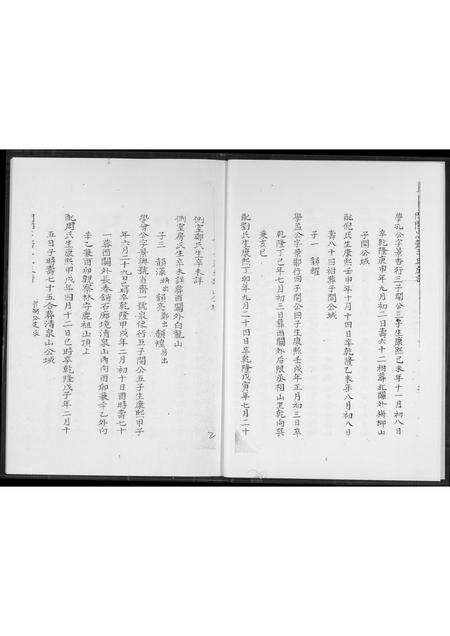 學孔公字景香行三子閣公三子生康熙己未年十一月初八日
卒乾隆庚申年九月初二日壽六十二相葬北關外梅柳山
子閣公域
配倪氏生康熙壬申年十月十四日卒乾隆乙未年八月初八日
壽八十四相葬子閣公域
子一 韻耀
學孟公字景鄒行四子閣公四子生康熙壬戌年正月初三日卒
乾隆丁巳年七月初三日葬西關外后陳丞相山里乾向巽
兼亥巳
配劉氏生康熙丁卯年九月二十四日卒乾隆戊寅年七月二十
側室鄭氏生卒未詳
側室房氏生卒未詳葬西關外白龍山
子三 韻藻 韻亮鄭出 韻煌房出
學會公字景與號省齋一號泉使行五子閣公五子生康熙甲子
年六月二十九日卯卒乾隆甲戌年二月初十日酉時壽七十
一葬西關外長春鋪石廊境清泉山內向酉卯兼辛乙外向
辛乙兼酉卯觀察林寺鹿祖山頂上
配周氏生康熙甲戌年四月十二日巳時卒乾隆戊子年二月十
五日子時壽七十五合葬清泉山公域